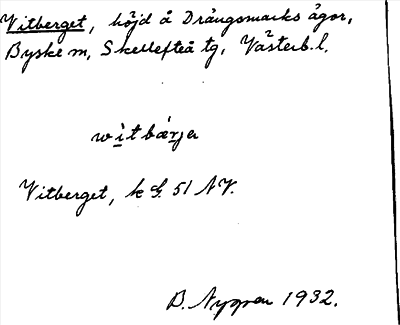 Vitberget, höjd å Drängsmarks ägor,
Byske m, Skellefteå tg, Västerb. l.
wìtbær̨er
Vitberget, k bl. 51 NV.
B. Nygren 1932.